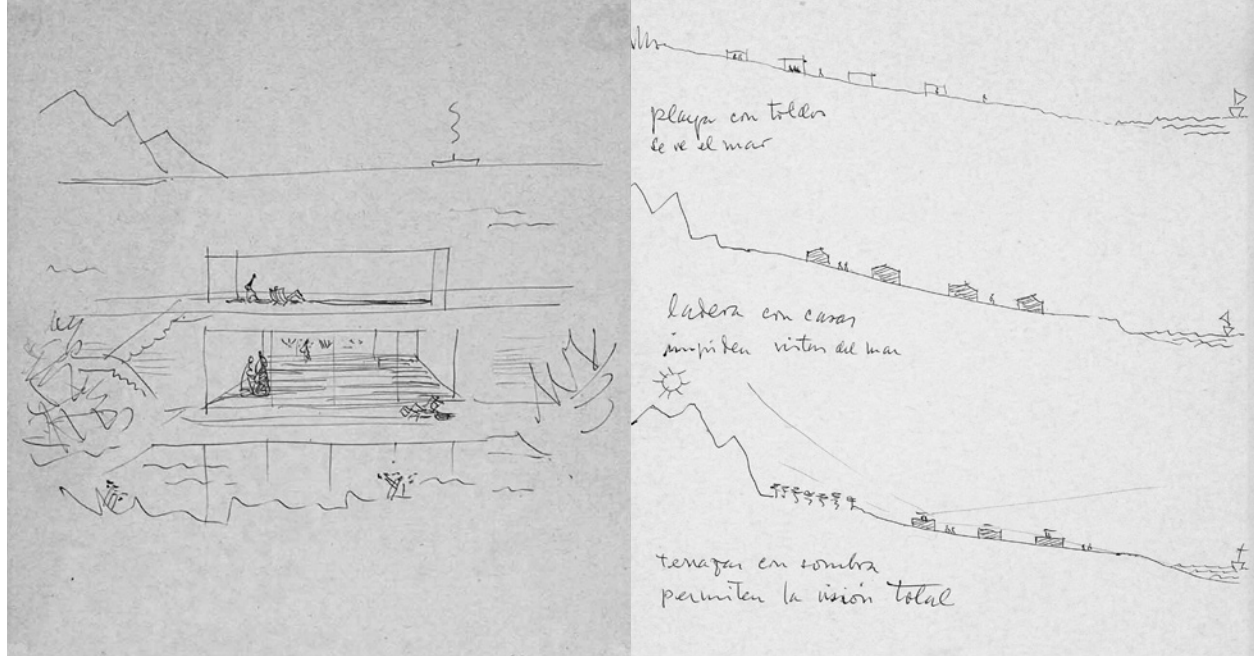 playa con toldos
se ve el mar
ladera con casas
impiden vistas del mar
terrazas en sombra
permiten la visión total